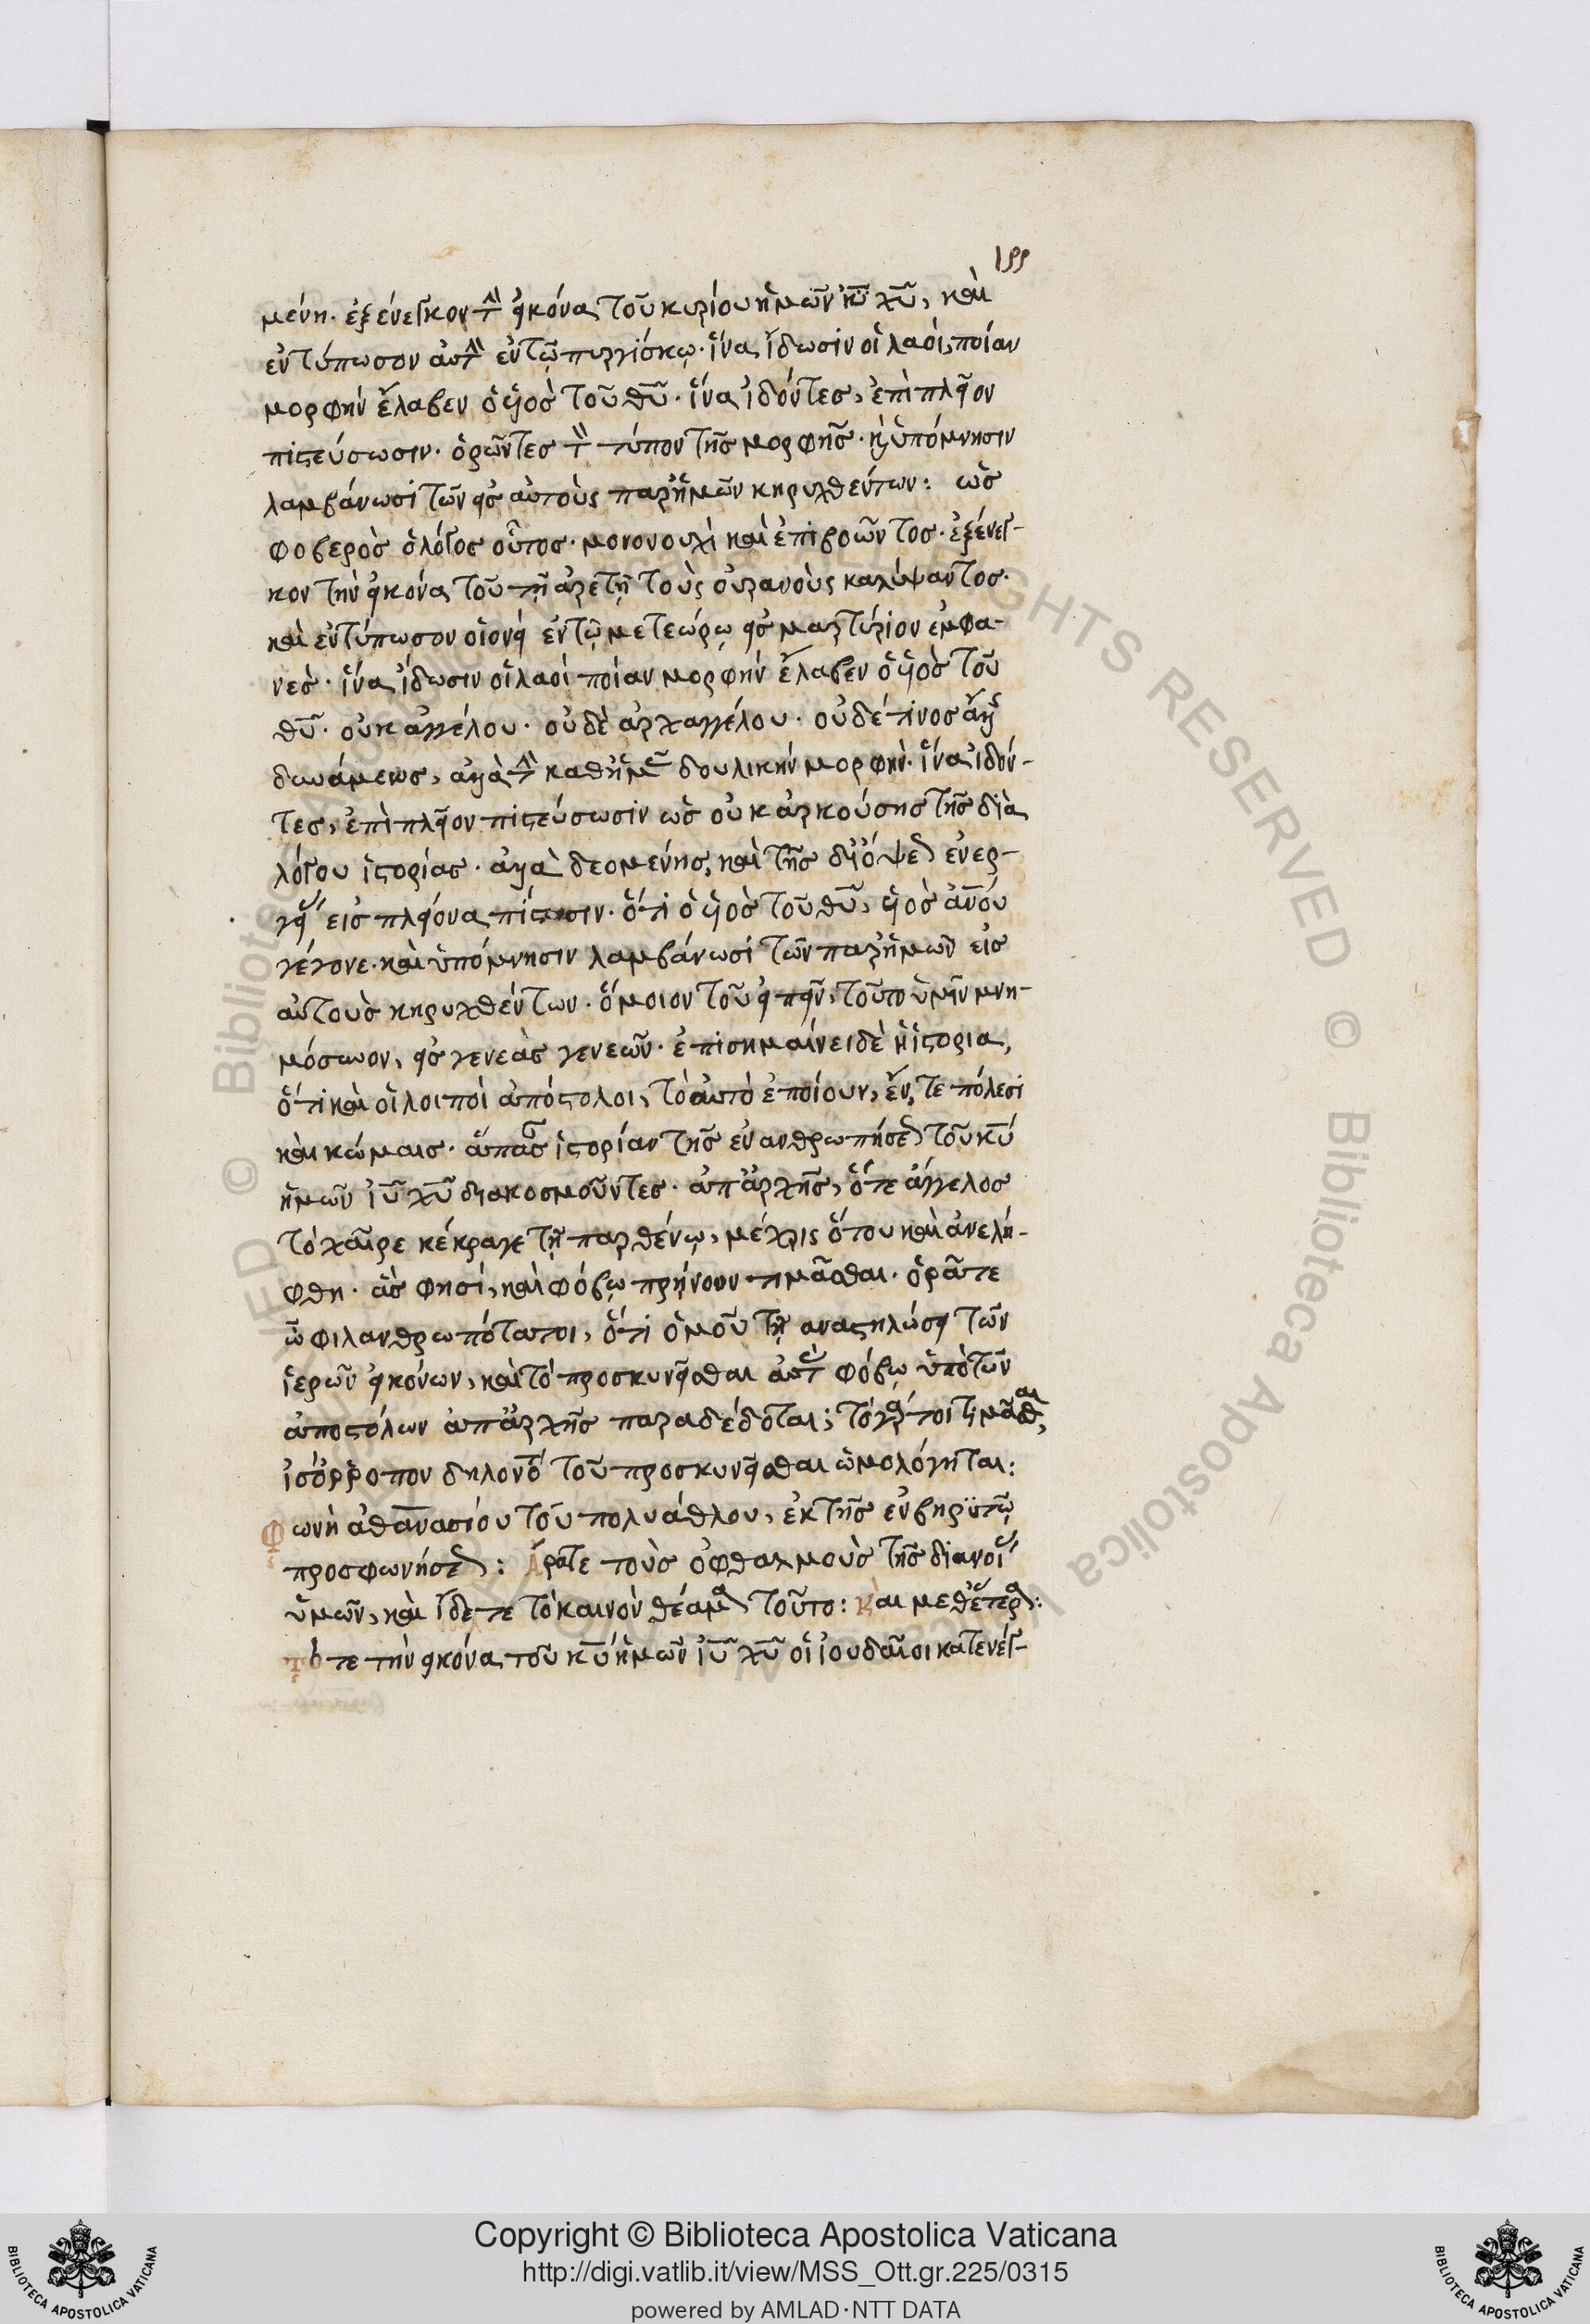 199
μένη· ἐξένεγκον τὴν εἰκόνα τοῦ κυρίου ἡμῶν ἰῦ χῦ, καὶ
ἐντύπωσον αὐτὴν ἐν τῷ πυργίσκῳ· ἵνα ἴδωσιν οἱ λαοὶ, ποίαν
μορφὴν ἔλαβεν ὁ υἱὸς τοῦ θῦ· ἵνα ἰδόντες, ἐπὶ πλεῖον
πιστεύσωσιν· ὁρῶντες τὸν τύπον τῆς μορφῆς· καὶ ὑπόμνησιν
λαμβάνωσι τῶν εἰς αὐτοὺς παρ' ἡμῶν κηρυχθέντων: ὡς
φοβερὸς ὁ λόγος οὗτος· μονονουχὶ καὶ ἐπιβοῶντος· ἐξένεγ-
κον τὴν εἰκόνα τοῦ τῇ ἀρετῇ τοὺς οὐρανοὺς καλύψαντος·
καὶ ἐντύπωσον οἱονεὶ ἐν τῷ μετεώρῳ εἰς μαρτύριον ἐμφα-
νές· ἵνα ἴδωσιν οἱ λαοὶ ποίαν μορφὴν ἔλαβεν ὁ υἱὸς τοῦ
θῦ· οὐκ ἀγγέλου· οὐδὲ ἀρχαγγέλου· οὐδέ τινος ἄλλης
δυνάμεως, ἀλλὰ τὴν καθ' ἡμᾶς δουλικὴν μορφήν· ἵνα ἰδόν-
τες, ἐπὶ πλεῖον πιστεύσωσιν ὡς οὐκ ἀρκούσης τῆς διὰ
λόγου ἱστορίας· ἀλλὰ δεομένης, καὶ τῆς δι' ὄψεως ἐνερ-
γείας εἰς πλείονα πίστωσιν· ὅτι ὁ υἱὸς τοῦ θῦ, υἱὸς ἀνου
γέγονε· καὶ ὑπόμνησιν λαμβάνωσι τῶν παρ' ἡμῶν εἰς
αὐτοὺς κηρυχθέντων· ὅμοιον τοῦ εἰπεῖν, τοῦτο ὑμῖν μνη-
μόσυνον, εἰς γενεὰς γενεῶν· ἐπισημαίνει δὲ ἡ ἱστορία,
ὅτι καὶ οἱ λοιποὶ ἀπόστολοι, τὸ αὐτὸ ἐποίουν, ἔν τε πόλεσι
καὶ κώμαις· ἅπασαν ἱστορίαν τῆς ἐνανθρωπήσεως τοῦ κυ
ἡμῶν ἰῦ χῦ διακοσμοῦντες· ἀπ' ἀρχῆς, ὅτε ἄγγελος
τὸ χαῖρε κέκραγε τῇ παρθένῳ, μέχρις ὅτου καὶ ἀνελή-
φθη· ἃς φησὶ, καὶ φόβῳ πρήνουν τιμᾶσθαι· ὁρᾶτε
ὦ φιλανθρωπότατοι, ὅτι ὁμοῦ τῇ αναστηλώσει τῶν
ἱερῶν εἰκόνων, καὶ τὸ προσκυνεῖσθαι αὐτὰς φόβῳ ὑπὸ τῶν
ἀποστόλων ἀπ' ἀρχῆς παραδέδοται; τὸ γάρ τοι τιμᾶσθαι,
ἰσόρροπον δηλονότι τοῦ προσκυνεῖσθαι ὡμολόγηται:
Φωνὴ ἀθανασίου τοῦ πολυάθλου, ἐκ τῆς ἐν βηρυτῷ
προσφωνήσεως: Ἄρατε τοὺς ὀφθαλμοὺς τῆς διανοίας
ὑμῶν, καὶ ἴδετε τὸ καινὸν θέαμα τοῦτο: Καὶ μεθ' ἕτερα:
τότε τὴν εἰκόνα τοῦ κυ ἡμῶν ἰῦ χῦ οἱ ἰουδαῖοι κατενέγ-
Copyright © Biblioteca Apostolica Vaticana
http://digi.vatlib.it/view/MSS_Ott.gr.225/0315
powered by AMLAD·NTT DATA